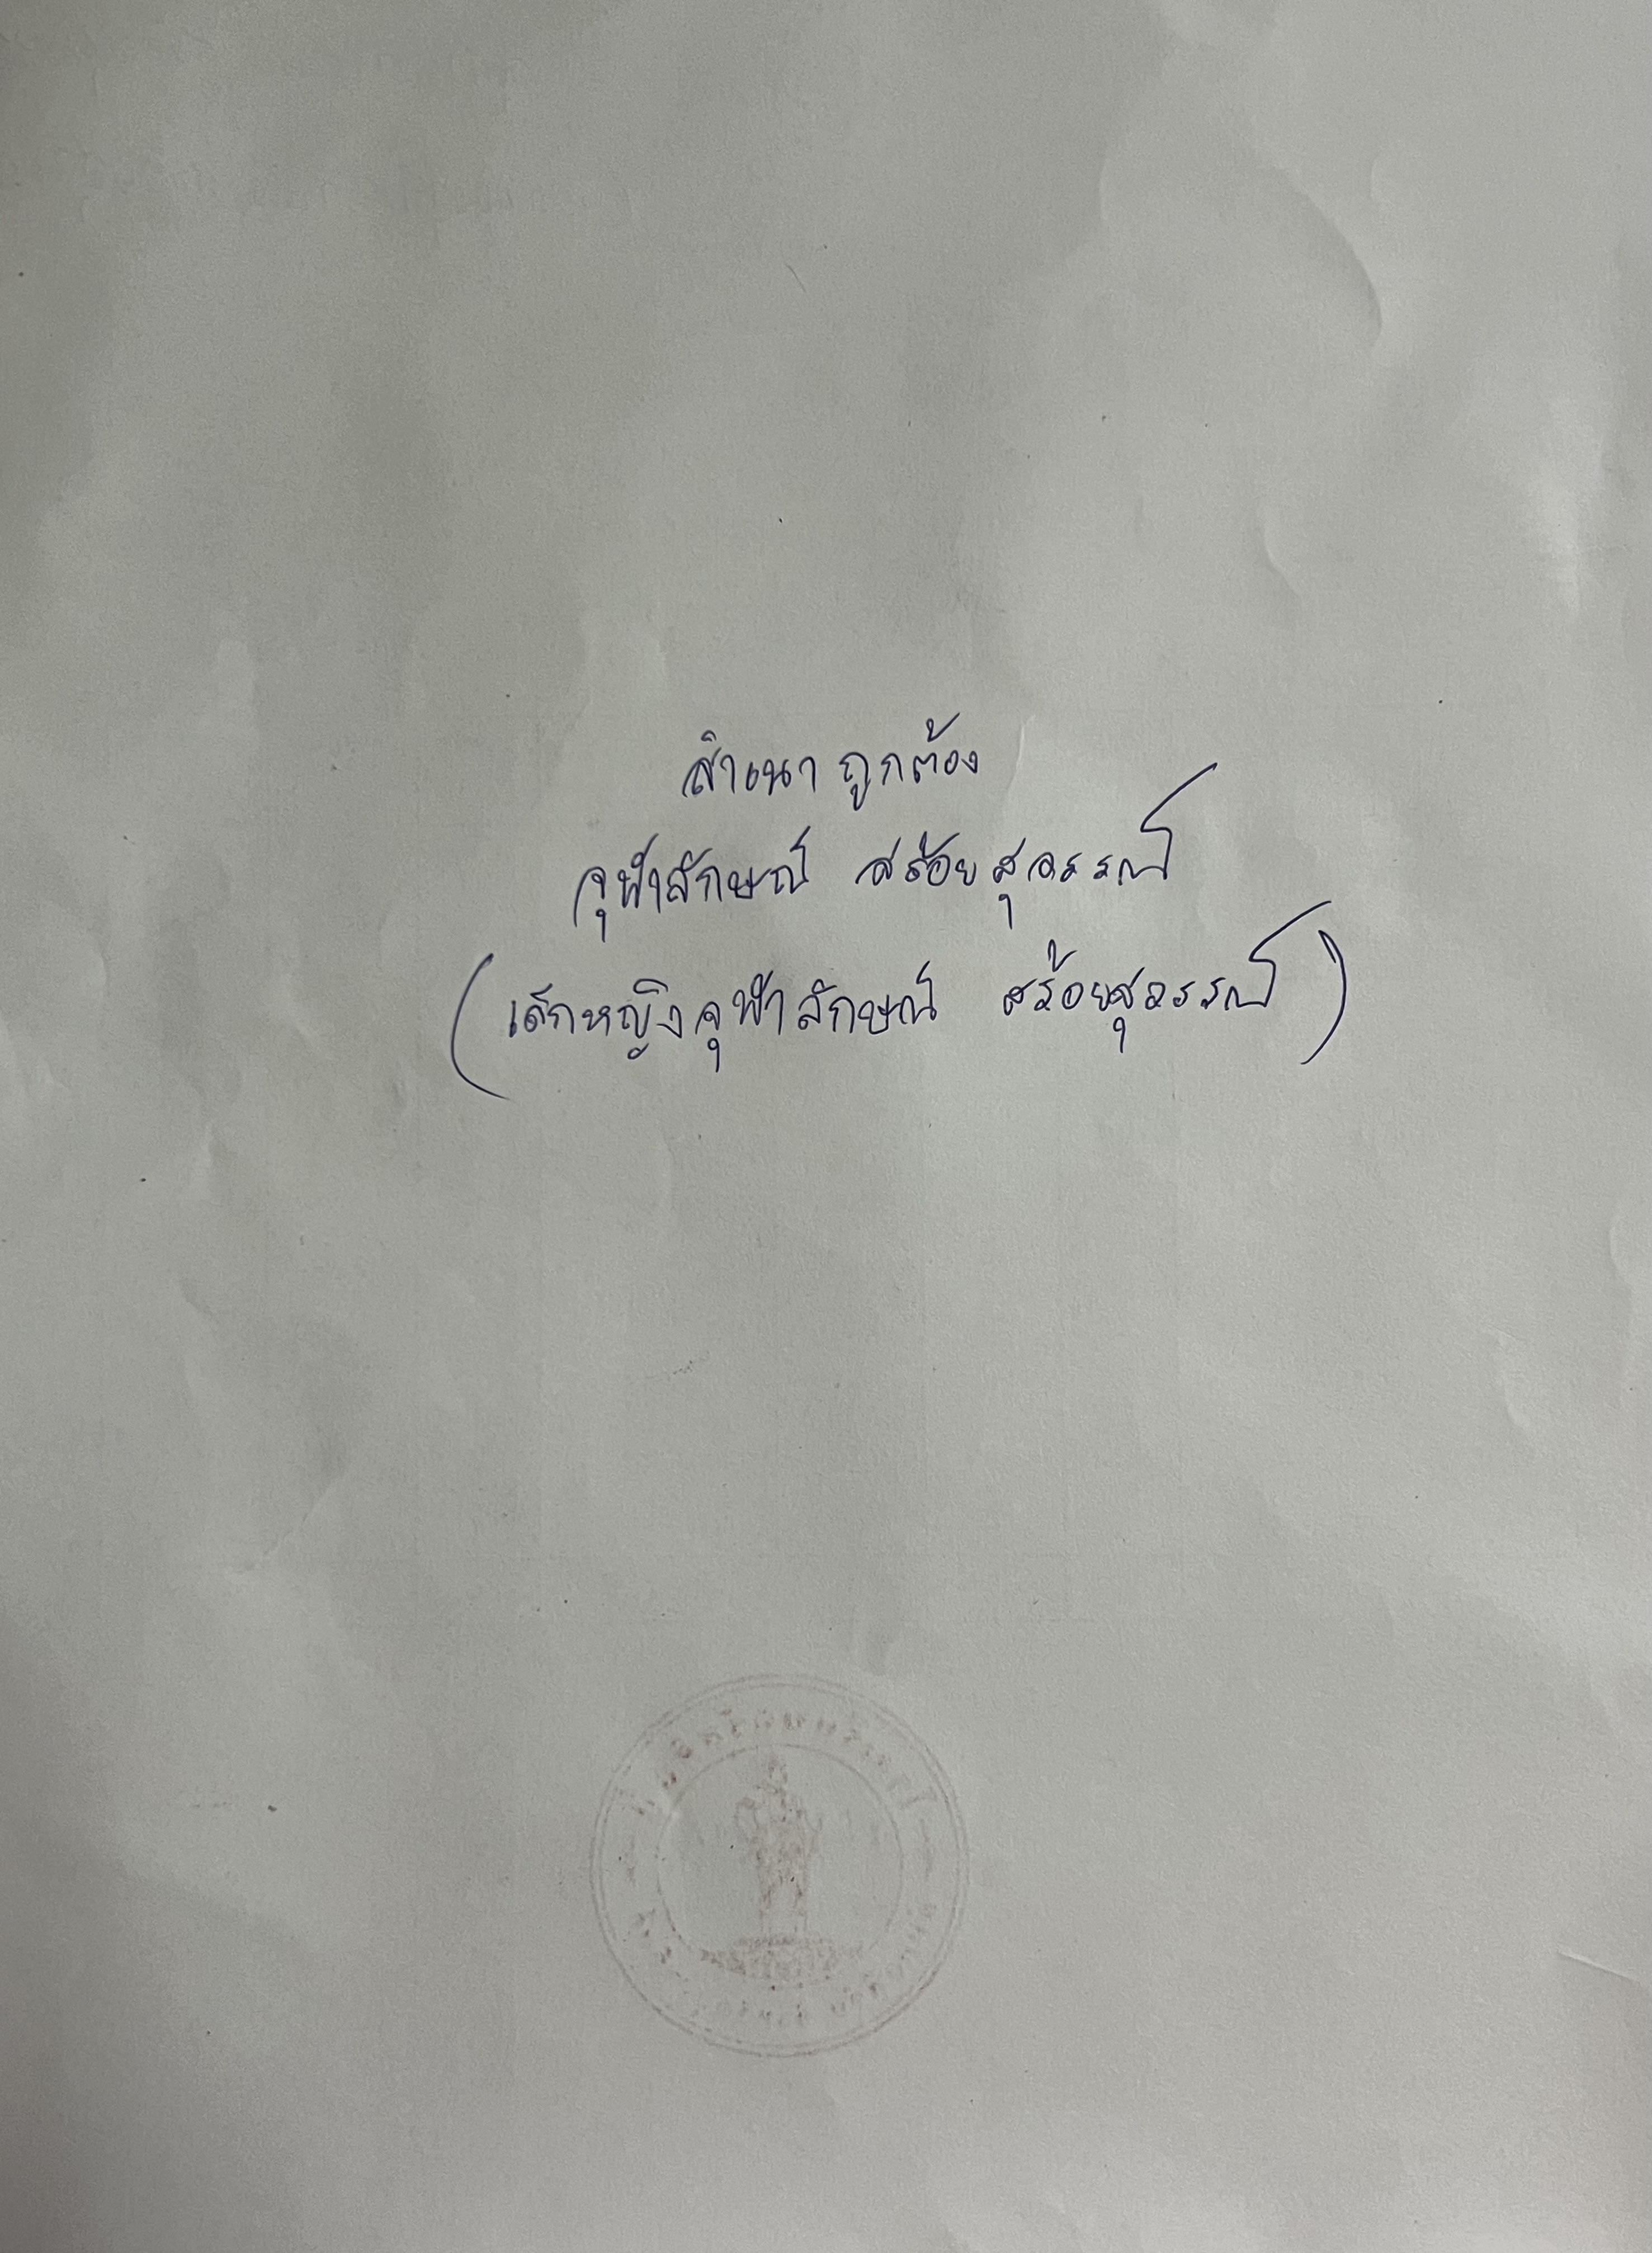 สำเนาถูกต้อง
จุฬาลักษณ์ สร้อยสุวรรณ์
(เด็กหญิงจุฬาลักษณ์ สร้อยสุวรรณ์)